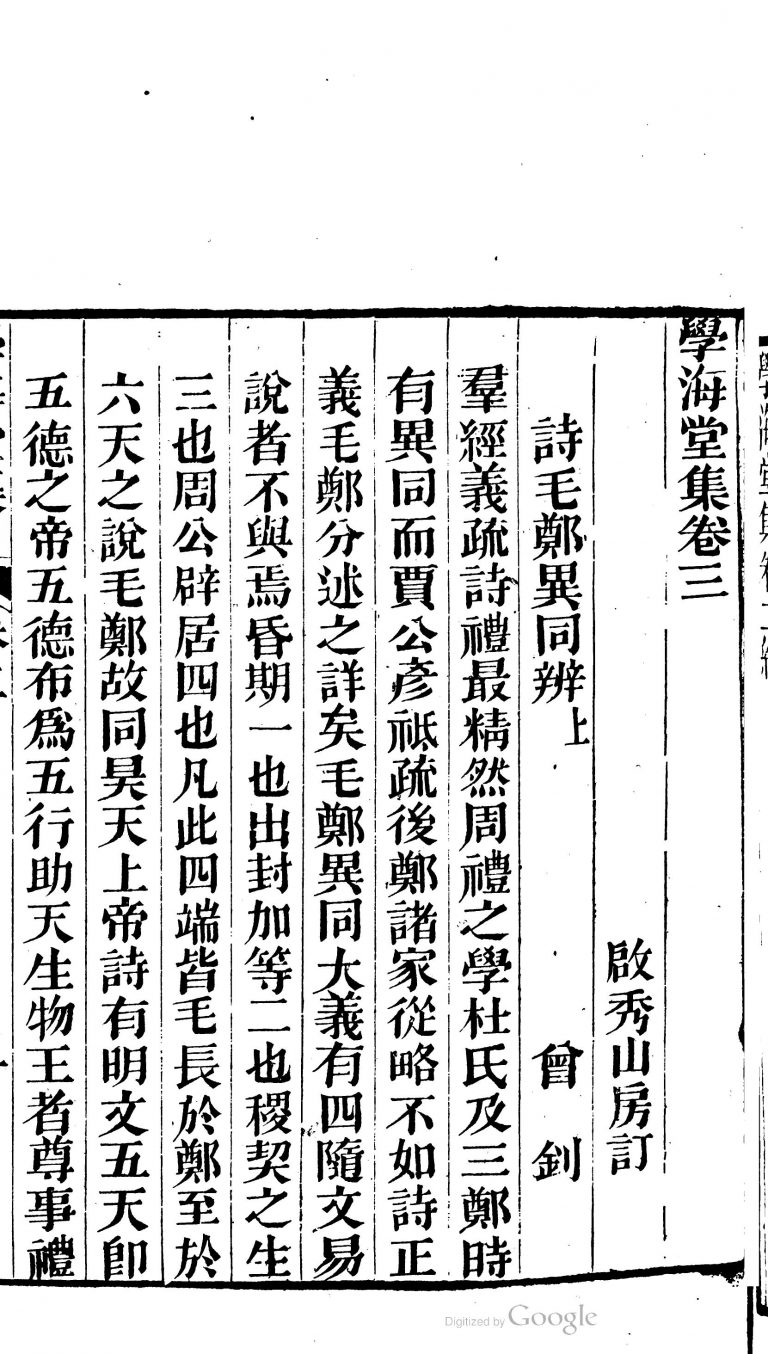 學海堂集卷三
啟秀山房訂
詩毛鄭異同辨上　曾釗
羣經義疏詩禮最精然周禮之學杜氏及三鄭時
有異同而賈公彥祗疏後鄭諸家從略不如詩正
義毛鄭分述之詳矣毛鄭異同大義有四隨文易
說者不與焉昏期一也出封加等二也稷契之生
三也周公辟居四也凡此四端皆毛長於鄭至於
六天之說毛鄭故同昊天上帝詩有明文五天卽
五德之帝五德布爲五行助天生物王者尊事禮
Digitized by Google